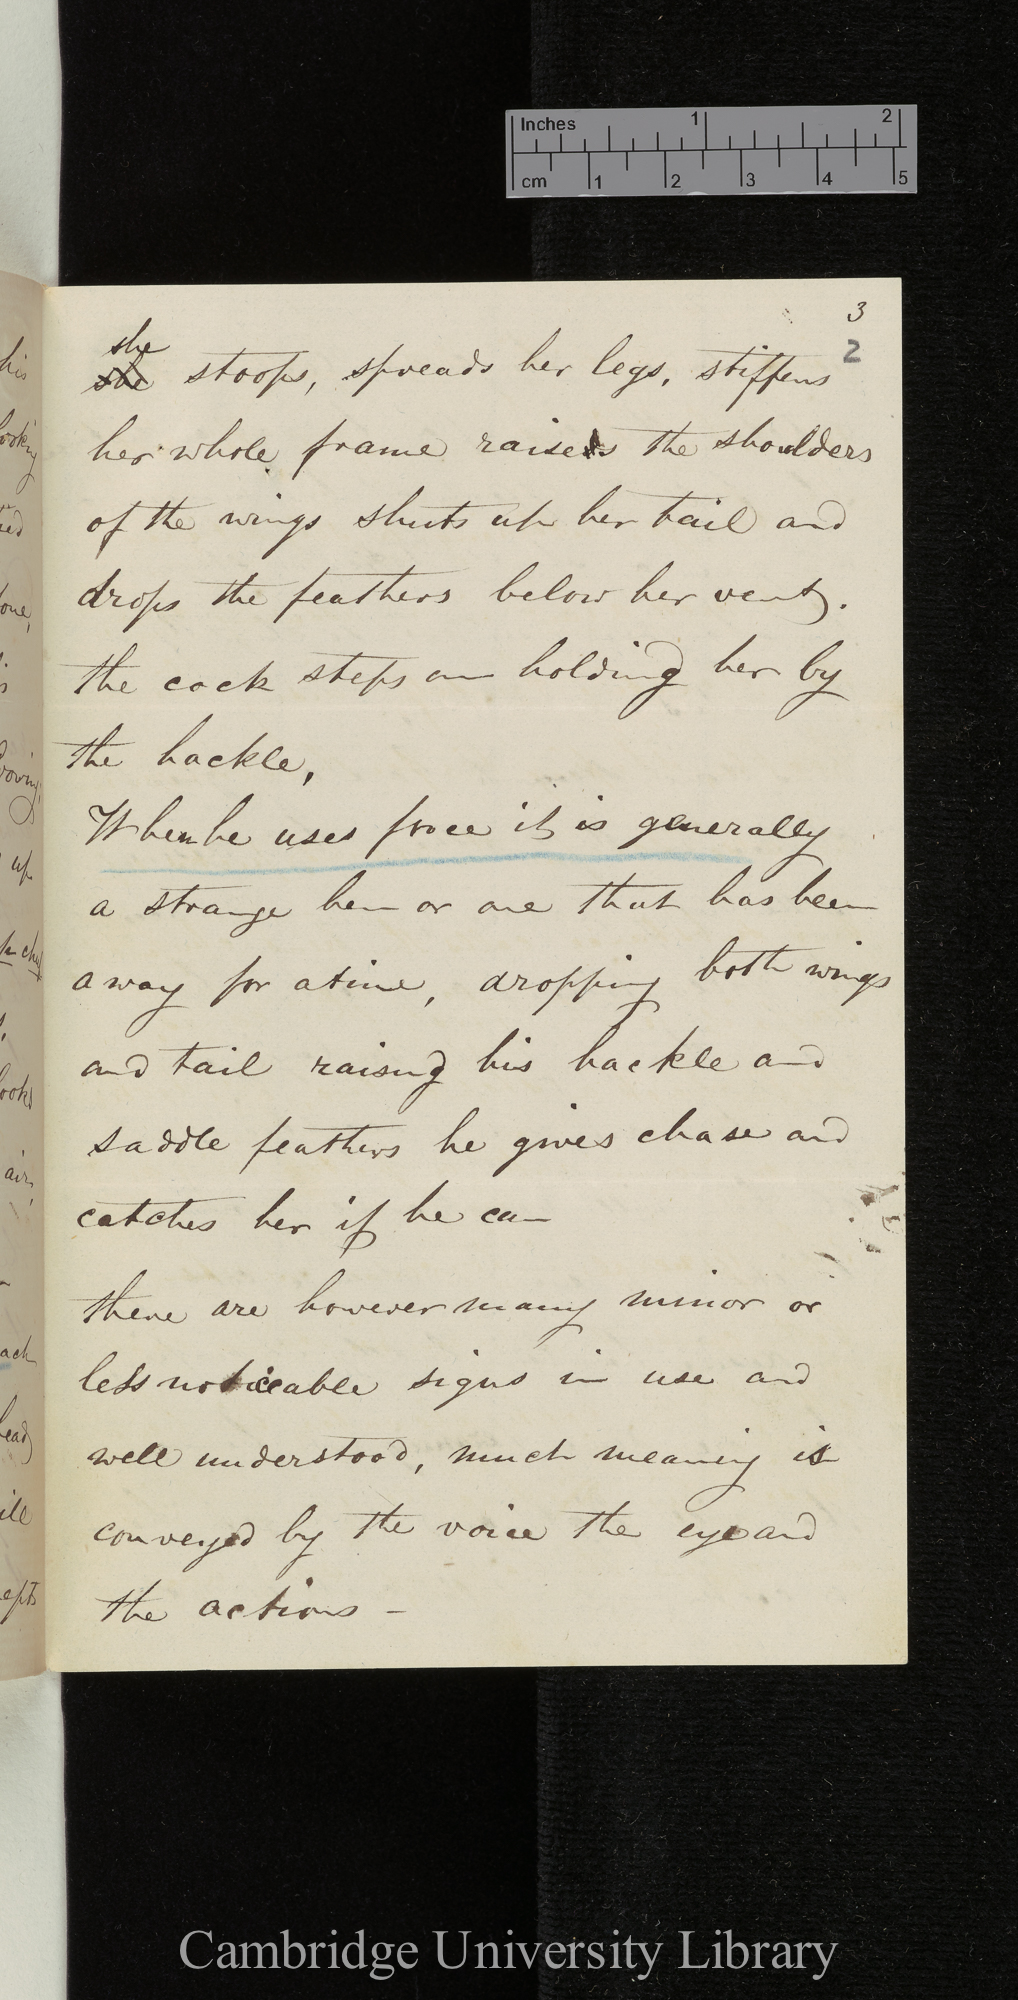 Inches 1 2
cm 1 2 3 4 5
3
2
she
she stoops, spreads her legs, stiffens
her whole frame raises the shoulders
of the wings shuts up her tail and
drops the feathers below her vent.
the cock steps on holding her by
the hackle,
When he uses force it is generally
a strange hen or one that has been
away for a time, dropping both wings
and tail raising his hackle and
saddle feathers he gives chase and
catches her if he can
there are however many minor or
less noticeable signs in use and
well understood, much meaning is
conveyed by the voice the eye and
the actions –
his
up
air,
Cambridge University Library